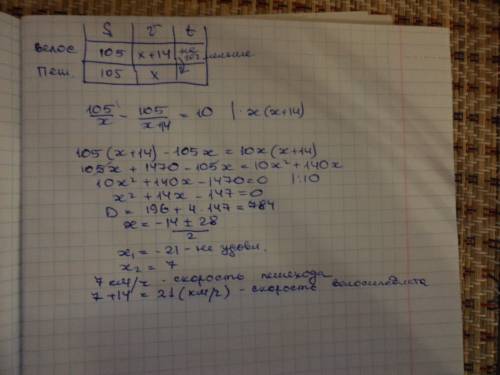 S v t
Велос. 105 x+14 на 10ч меньше
Пеш. 105 x
105/x - 105/x+14 = 10 | · x(x+14)
105(x+14) - 105x = 10x(x+14)
105x + 1470 - 105x = 10x² + 140x
10x² + 140x - 1470 = 0 |:10
x² + 14x - 147 = 0
D = 196 + 4·147 = 784
x = -14 ± 28 / 2
x₁ = -21 - не удовл.
x₂ = 7
7 км/ч - скорость пешехода
7 + 14 = 21 (км/ч) - скорость велосипедиста